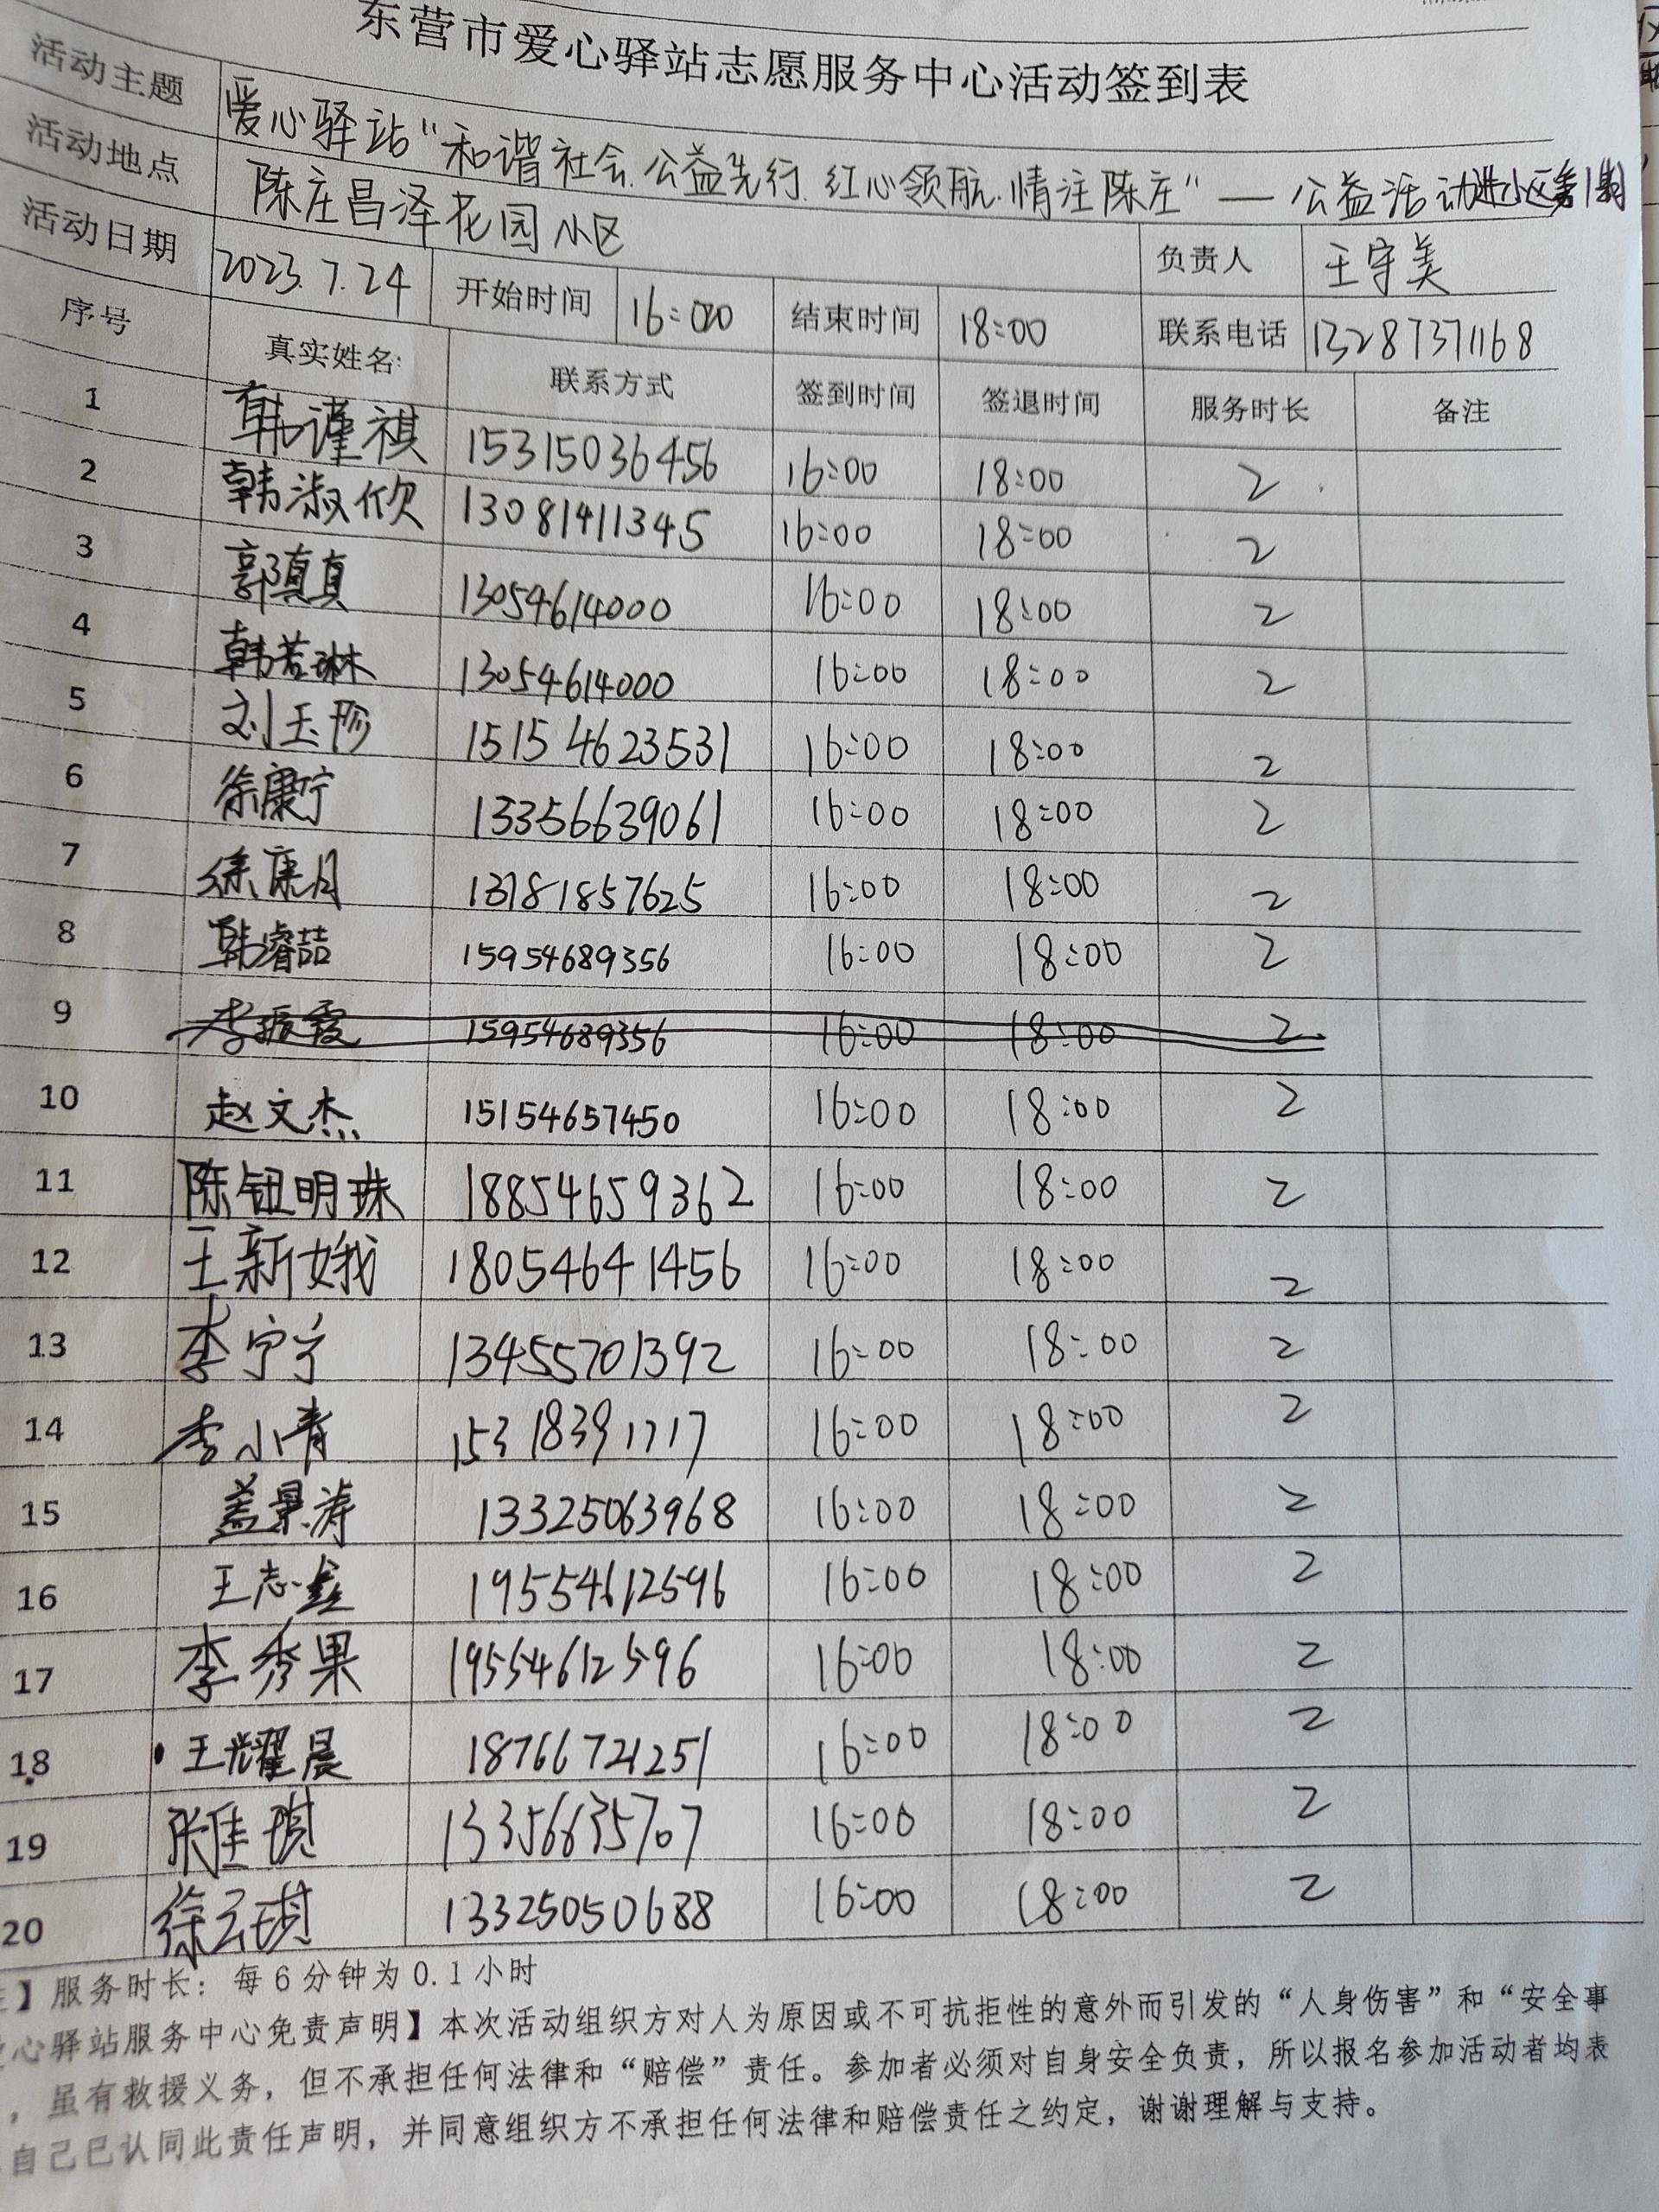 东营市爱心驿站志愿服务中心活动签到表
活动主题 爱心驿站“和谐社会.公益先行.红心领航.情注陈庄”—公益活动进小区第1期
活动地点 陈庄昌泽花园小区 负责人 王守美
活动日期 2023.7.24 开始时间 16:00 结束时间 18:00 联系电话 13287371168
序号 真实姓名: 联系方式 签到时间 签退时间 服务时长 备注
1 韩谨祺 15315036456 16:00 18:00 2
2 韩淑欣 13081411345 16:00 18:00 2
3 郭真真 13054614000 16:00 18:00 2
4 韩若琳 13054614000 16:00 18:00 2
5 刘玉珍 15154623531 16:00 18:00 2
6 徐康宁 13356639061 16:00 18:00 2
7 徐康月 13781857625 16:00 18:00 2
8 韩睿喆 15954689356 16:00 18:00 2
9 李振霞 15954689356 16:00 18:00 2
10 赵文杰 15154657450 16:00 18:00 2
11 陈钮明珠 18854659362 16:00 18:00 2
12 王新娥 18054641456 16:00 18:00 2
13 李宁宁 13455701392 16:00 18:00 2
14 李小青 15318391717 16:00 18:00 2
15 盖景涛 13325063968 16:00 18:00 2
16 王志鑫 19554612596 16:00 18:00 2
17 李秀果 19554612596 16:00 18:00 2
18 王耀晨 18766721251 16:00 18:00 2
19 张佳琪 13356635707 16:00 18:00 2
20 徐云琪 13325050688 16:00 18:00 2
】服务时长：每6分钟为0.1小时
心驿站服务中心免责声明】本次活动组织方对人为原因或不可抗拒性的意外而引发的“人身伤害”和“安全事
，虽有救援义务，但不承担任何法律和“赔偿”责任。参加者必须对自身安全负责，所以报名参加活动者均表
自己已认同此责任声明，并同意组织方不承担任何法律和赔偿责任之约定，谢谢理解与支持。